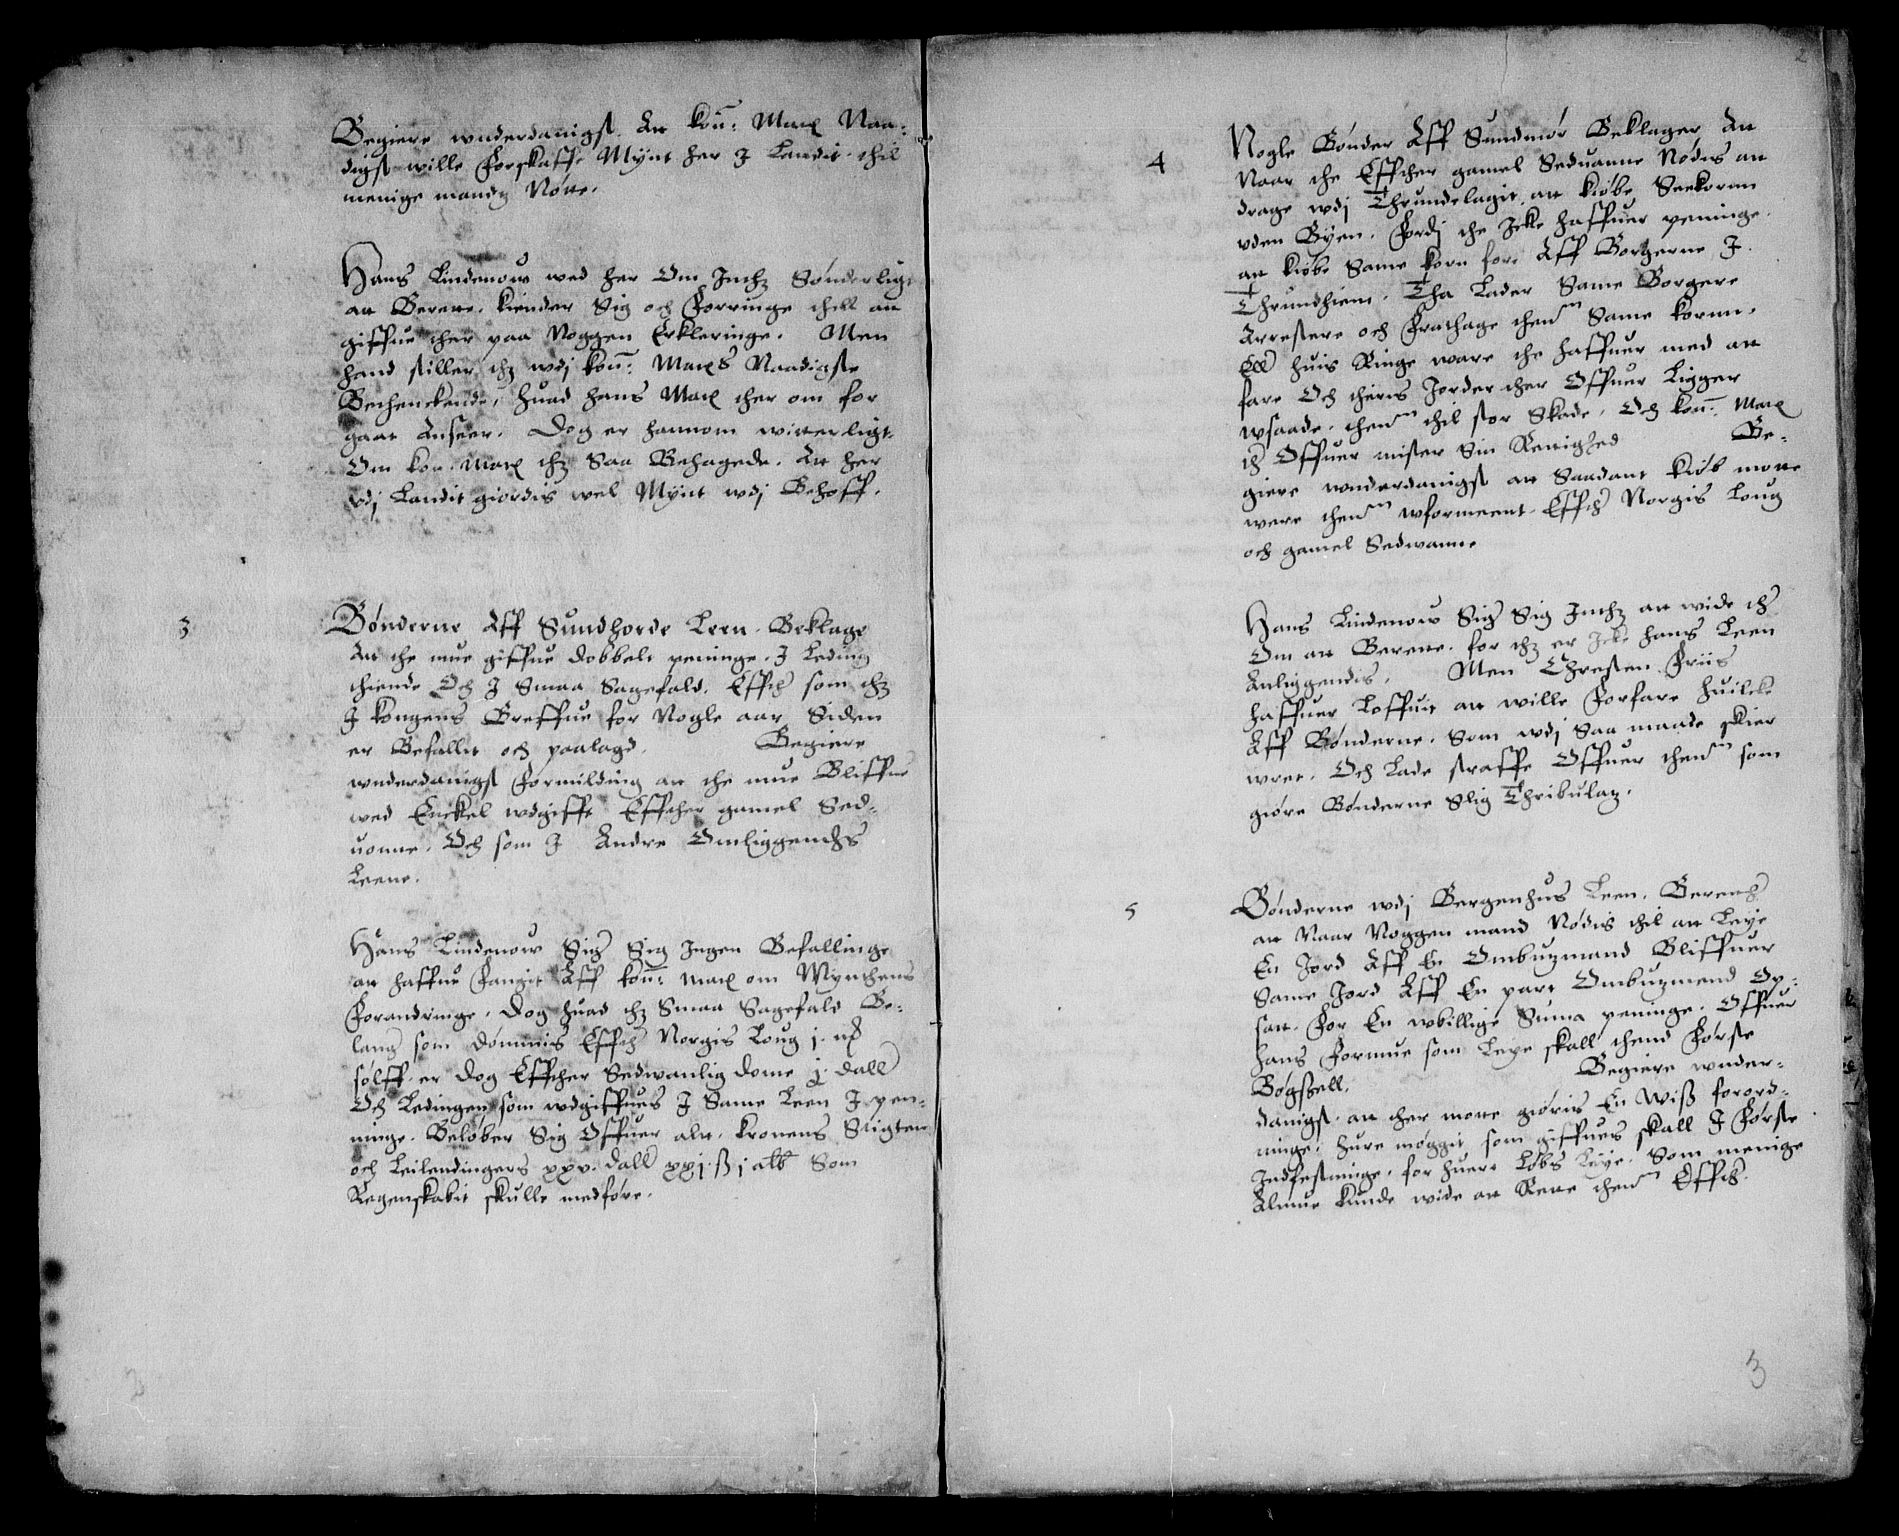 Begiere wnderdanigst. At kon: Matt Naa-
digst wille Forskaffe Mynt her I Landit thil
menige mandz Nötte.
Hans Lindenow wed her Om Inthz Sönderligt
at Berette. kiender Sig och Forringe thill at
giffue ther paa Noggen Erkleringe. Men
hand stiller thz wdj kon: Matts Naadigste
Bethenckende, huad hans Matt ther om for
gaat Anseer. Dog er hannom witterligt.
Om kon. Matt thz Saa Behagede. At her
wdj Landit giordis wel Mynt wdj Behoff.
3
Bönderne Aff Sundhorde Leen. Beklage
At the mue giffue dobbelt peninge. I Leding
thiende Och I Smaa Sagefald. Effth som thz
I kongens Breffue for Nogle aar Siden
er Befallit och paalagd. Begiere
wnderdanigst Formilding at the mue Bliffue
wed Enckel wdgifft Effther gamel Sed-
uonne. Och som I Andre Omliggendhs
Leene.
Hans Lindenow Sigs Sig Ingen Befallinge
at haffue Fangit Aff kon: Matt om Mynthens
Forandringe. Dog huad thz Smaa Sagefald Be-
lang som dömmis Effth Norgis Loug j. mk
sölff. er dog Effther Sedwanlig dome j. dall
Och Ledingen som wdgiffues I Same Leen I pen-
ninge. Belöber Sig Offuer alt. kronens Stigten
och Leilendingers xxv. dall xxj ß j alb Som
Regenskabit skulle medföre.
2
4
Nogle Bönder Aff Sundmör Beklager At
Naar the Effther gamel Seduanne Nödis at
drage wdj Thrundelagit at kiöbe Seekornn
vden Byen. Fordj the Icke haffuer peninge.
at kiöbe Same korn fore Aff Borgerne I.
Thrundhiem. Tha Lader Same Borgere
Arrestere och Fratage thenm Same kornn.
Ell huis Ringe ware the haffuer med at
fare Och theris Jorder ther Offuer Ligger
wsaade. thenm thil stor Skade. Och kon: Matt
th Offuer mister Sin Rettighed Be-
giere wnderdanigst at Saadant kiöb motte
were thenm wformeent. Effth Norgis Loug
och gamel Sedwanne
Hans Lindenow Sigs Sig Inthz at wide th
Om at Berette. for thz er Icke hans Leen
Anliggendis. Men Chresten Friis
haffuer Loffuit at wille Forfare huilcke
Aff Bönderne. Som wdj Saa maade skier
wret. Och Lade straffe Offuer thenm som
giöre Bönderne Slig Thribulatz.
5
Bönderne wdj Bergenhus Leen. Beretth
at Naar Noggen mand Nödis thil at Leye
En Jord Aff En Ombutzmand Bliffuer
Same Jord Aff En part Ombutzmend Op-
sat. For En wbillige Suma peninge. Offuer
hans Formue som Leye skall thend Förste
Bögssell. Begiere wnder-
danigst. at ther motte giöris En Wiß forord-
ninge, Hure möggit som giffues skall I Förste
Indfestninge. for huert Löbs Leye. Som menige
Almue kunde wide at Rette thenm Effth.
3